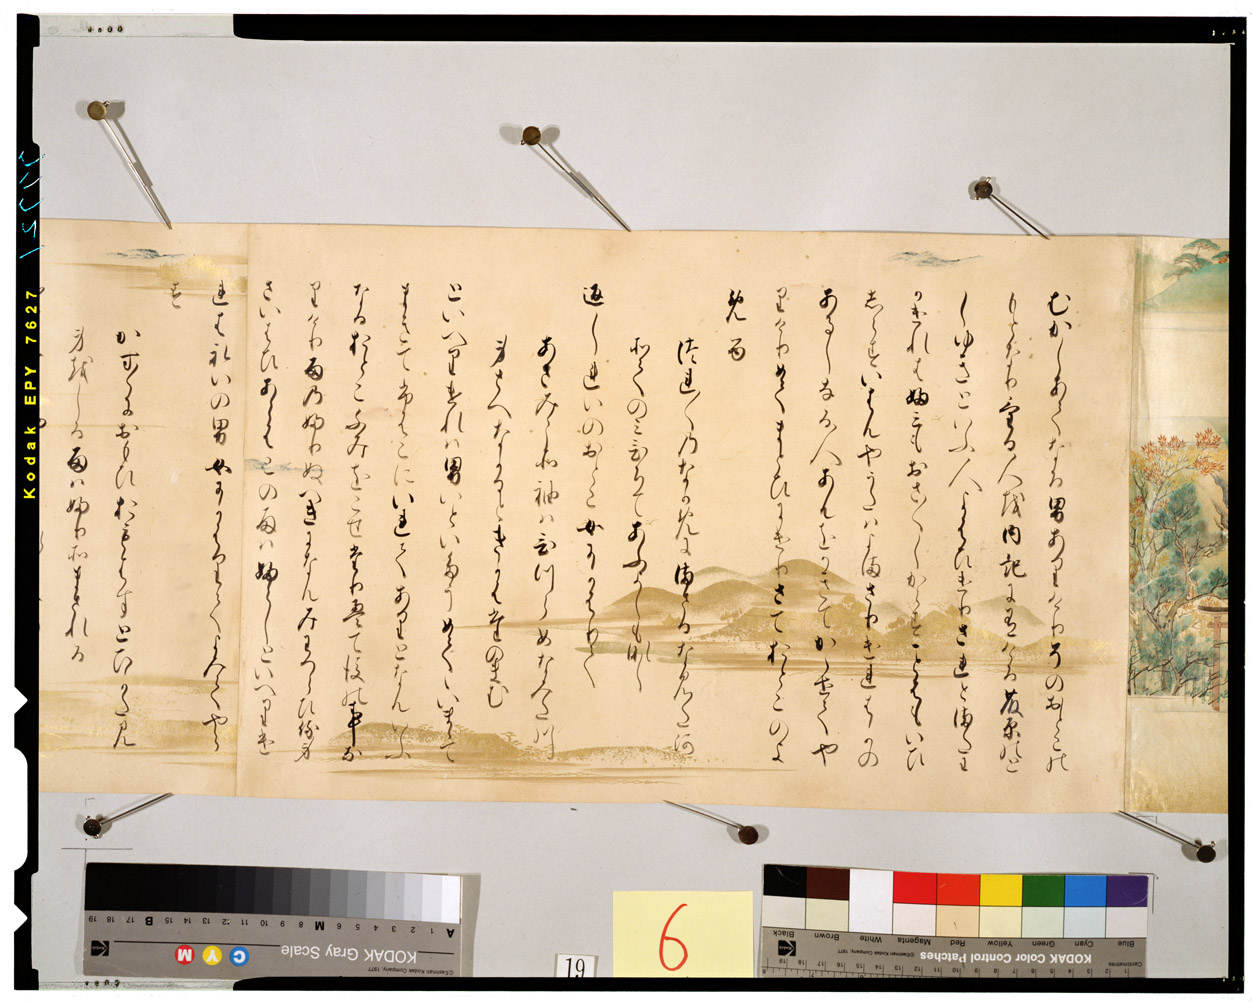 むかしあてなる男ありけりそのおとこの
もとなりける人を内記に有ける藤原のと
しゆきといふ人よはひけりされとまたわ
かけれは文もおさ〱しからすことはもいひ
しらすいはんやうたはよまさりけれはかの
あるしなる人あんをかきてかゝせてや
りけりめてまとひにけりさておとこのよ
める
つれ〱のなかめにまさるなみた河
袖のみひちてあふよしもなし
返しれいのおとこ女にかはりて
あさみこそ袖はひつらめなみた川
身さへなかるときかはたのまむ
といへりけれは男いといたうめてゝいまゝて
まきてふはこにいれてありとなんいふ
なるおとこふみをこせたりえて後の事な
りけり雨のふりぬへきになんみわつらひ侍身
さいはひあらはこの雨はふらしといへりけ
れはれいの男女にかはりてよみてやら
す
かす〱におもひおもはすとひかたみ
身をしる雨はふりそまされる
Kodak EPY 7627
6
19
KODAK Gray Scale
C Y M
©Eastman Kodak Company, 1977
A 1 2 3 4 5 6 M 8 9 10 11 12 13 14 15 B 17 18 19
KODAK Color Control Patches
©Eastman Kodak Company, 1977
Centimetres
Blue Cyan Green Yellow Red Magenta White Brown Black